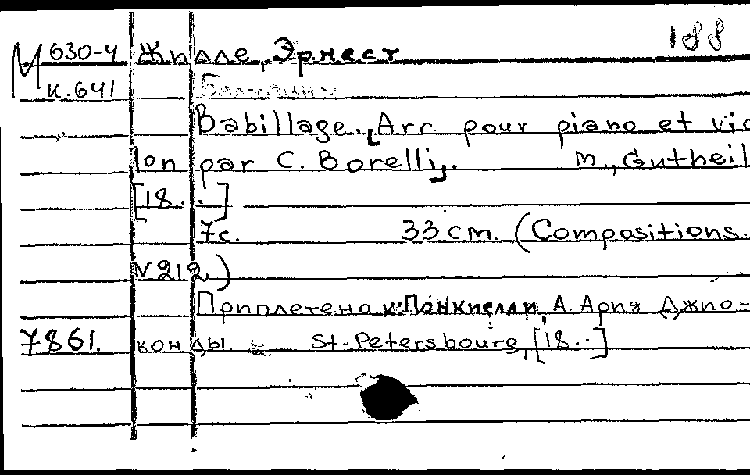 188
М 630-4 Жилле, Эрнест
к. 641
Babillage. [Arr pour piano et vio
lon par C. Borelli]. M., Gutheil
[18..]
7с. 33 см. (Compositions.
N 212.)
Приплетено к: Понкиелли, А. Ария Джио-
7861. конды. St-Petersbourg, [18..]